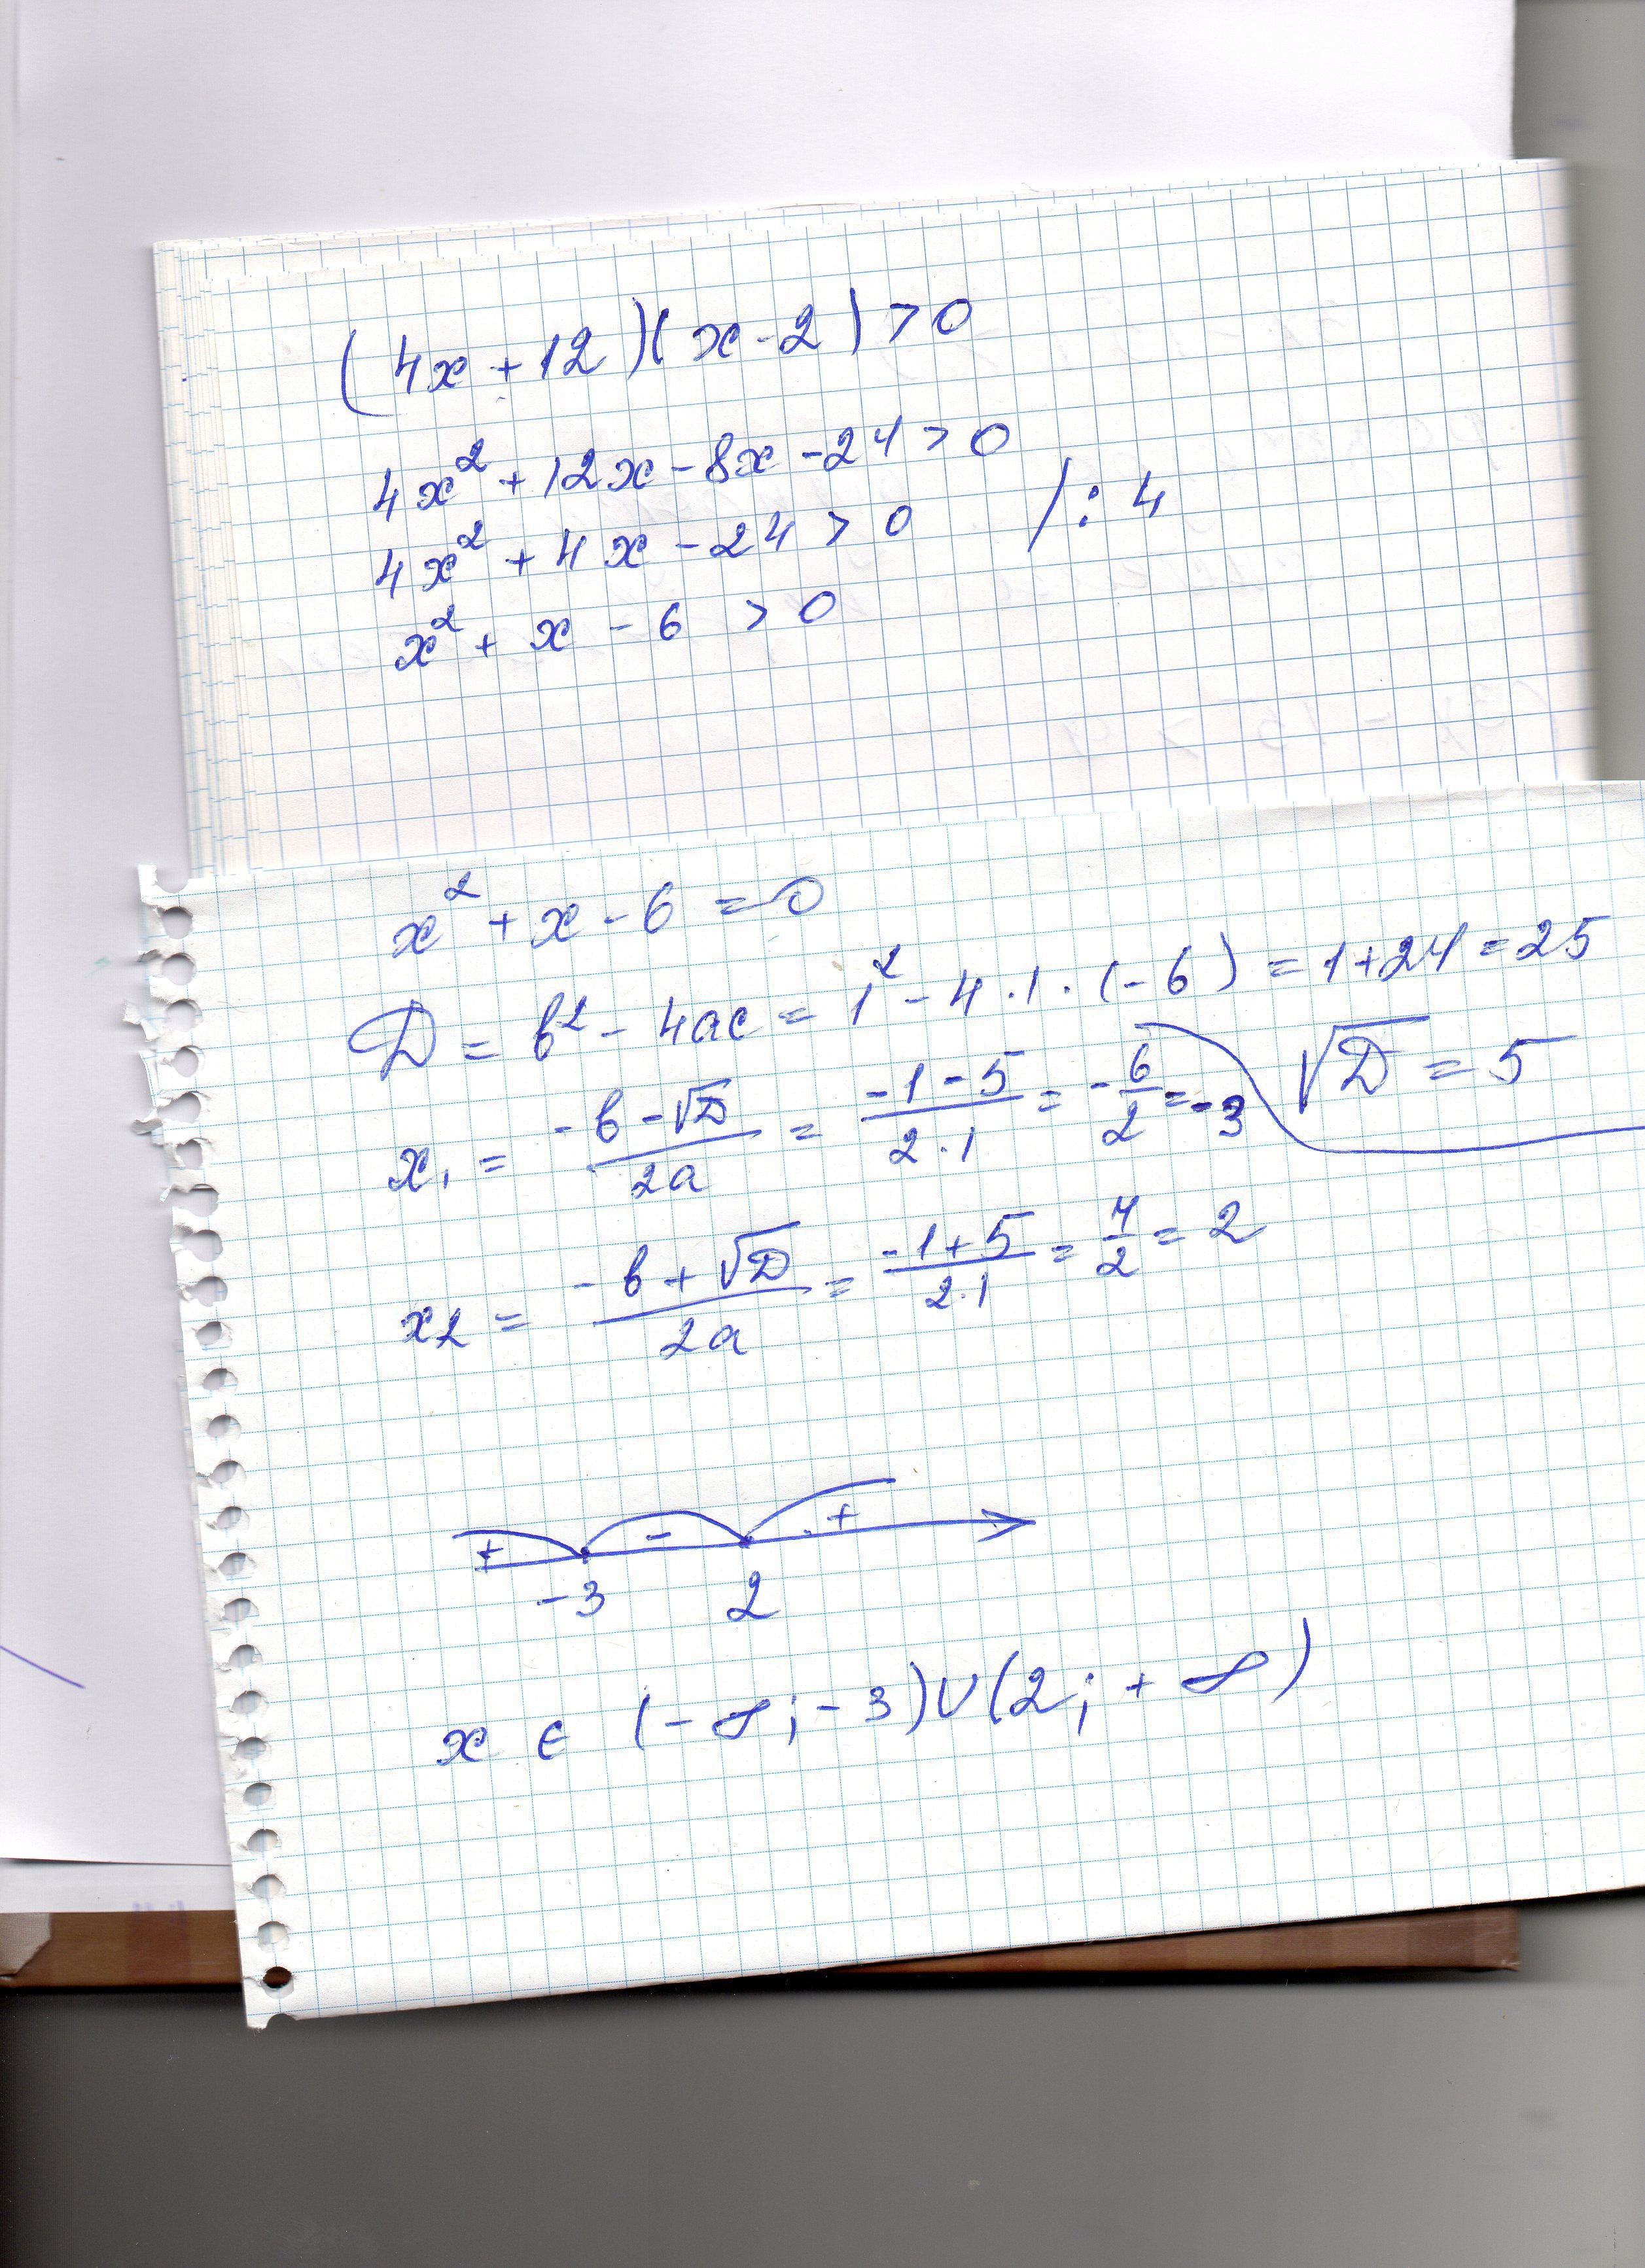 (4x+12)(x-2)>0
4x²+12x-8x-24>0
4x²+4x-24>0 /:4
x²+x-6>0
x²+x-6=0
D=b²-4ac=1²-4·1·(-6)=1+24=25
√D=5
x₁=(-b-√D)/2a=(-1-5)/2·1=-6/2=-3
x₂=(-b+√D)/2a=(-1+5)/2·1=4/2=2
+ - +
-3 2
x∈(-∞;-3)∪(2;+∞)